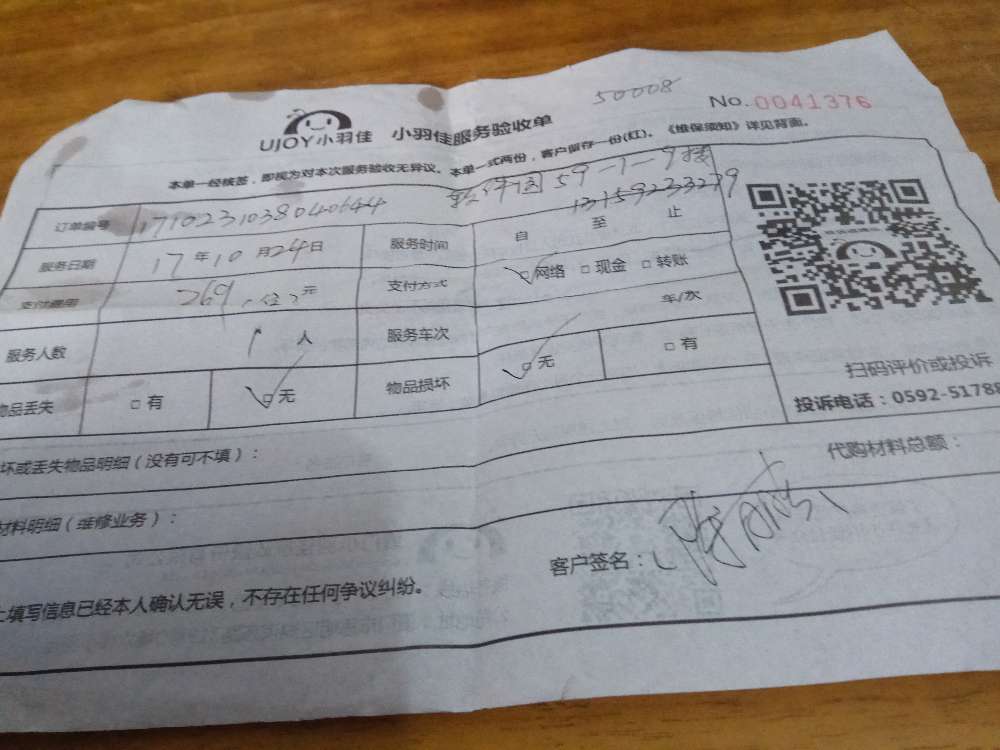 50008
No.0041376
UJOY小羽佳 小羽佳服务验收单
本单一经核签，即视为对本次服务验收无异议。本单一式两份，客户留存一份(红)。《维保须知》详见背面。
软件园59-1-9楼
订单编号 1710231038040644 13159233279
服务日期 17年10月24日 服务时间 自 至 止
支付费用 269 元 支付方式 网络 □ 现金 □ 转账
服务人数 1 人 服务车次 车/次
物品丢失 □ 有 无 物品损坏 无 □ 有
扫码评价或投诉
投诉电话：0592-5178
坏或丢失物品明细（没有可不填）：
代购材料总额：
材料明细（维修业务）：
客户签名：
上填写信息已经本人确认无误，不存在任何争议纠纷。